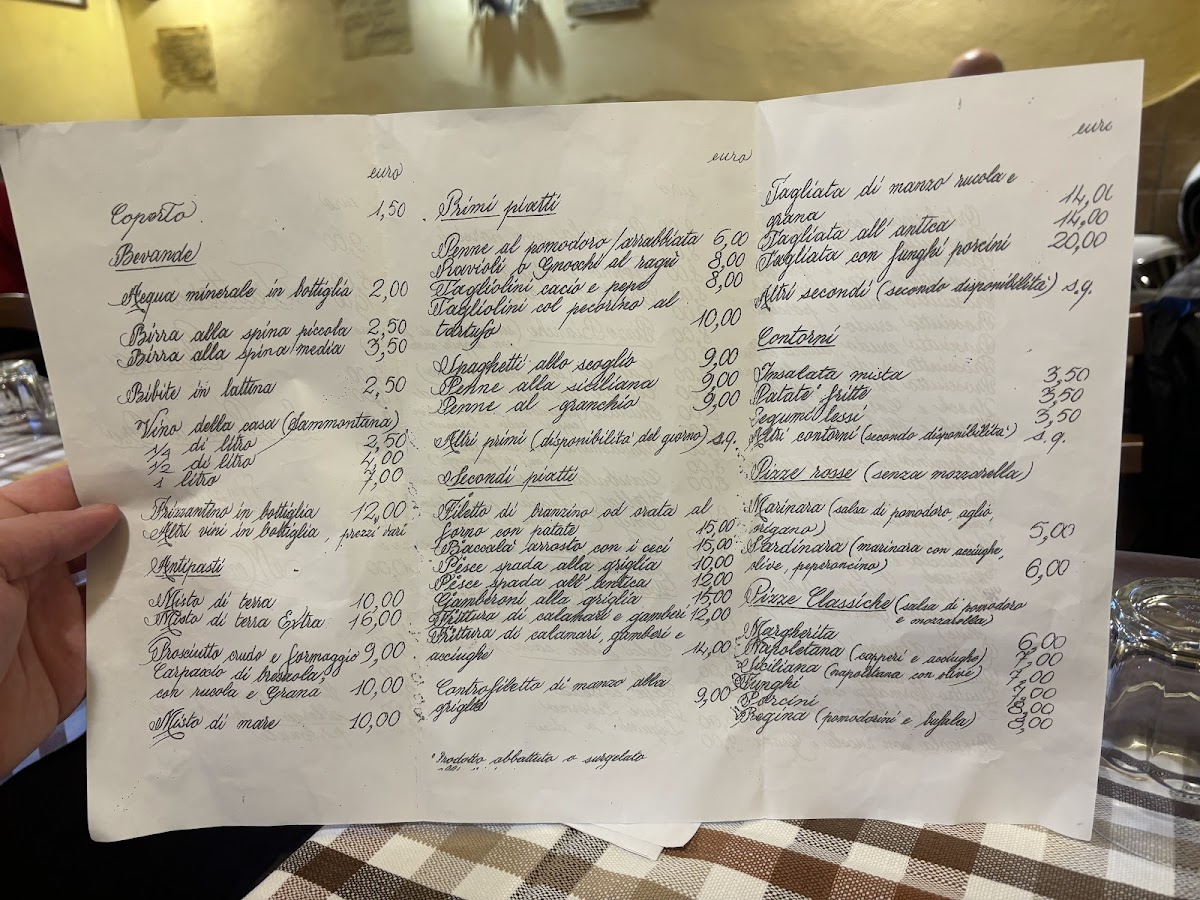 euro
Coperto 1,50
Bevande
Acqua minerale in bottiglia 2,00
Birra alla spina piccola 2,50
Birra alla spina media 3,50
Bibite in lattina 2,50
Vino della casa (Sammontana)
1/4 di litro 2,50
1/2 di litro 4,00
1 litro 7,00
Frizzantino in bottiglia 12,00
Altri vini in bottiglia, prezzi vari
Antipasti
Misto di terra 10,00
Misto di terra Extra 16,00
Prosciutto crudo e formaggio 9,00
Carpaccio di bresaola,
con rucola e Grana 10,00
Misto di mare 10,00
euro
Primi piatti
Penne al pomodoro/arrabbiata 6,00
Ravioli o Gnocchi al ragù 8,00
Tagliolini cacio e pepe 8,00
Tagliolini col pecorino al
tartufo 10,00
Spaghetti allo scoglio 9,00
Penne alla siciliana 9,00
Penne al granchio 9,00
Altri primi (disponibilità del giorno) s.q.
Secondi piatti
Filetto di branzino od orata al
forno con patate 15,00
Baccalà arrosto con i ceci 15,00
Pesce spada alla griglia 10,00
Pesce spada all'antica 12,00
Gamberoni alla griglia 15,00
Frittura di calamari e gamberi 12,00
Frittura di calamari, gamberi e
acciughe 14,00
Controfiletto di manzo alla
griglia 9,00
*Prodotto abbattuto o surgelato
euro
Tagliata di manzo rucola e
grana 14,00
Tagliata all'antica 14,00
Tagliata con funghi porcini 20,00
Altri secondi (secondo disponibilità) s.q.
Contorni
Insalata mista 3,50
Patate* fritte 3,50
Legumi lessi 3,50
Altri contorni (secondo disponibilità) s.q.
Pizze rosse (senza mozzarella)
Marinara (salsa di pomodoro, aglio,
origano) 5,00
Sardinara (marinara con acciughe,
olive, peperoncino) 6,00
Pizze Classiche (salsa di pomodoro
e mozzarella)
Margherita 6,00
Napoletana (capperi e acciughe) 7,00
Siciliana (napoletana con olive) 7,00
Funghi 7,00
Porcini 8,00
Regina (pomodorini e bufala) 8,00